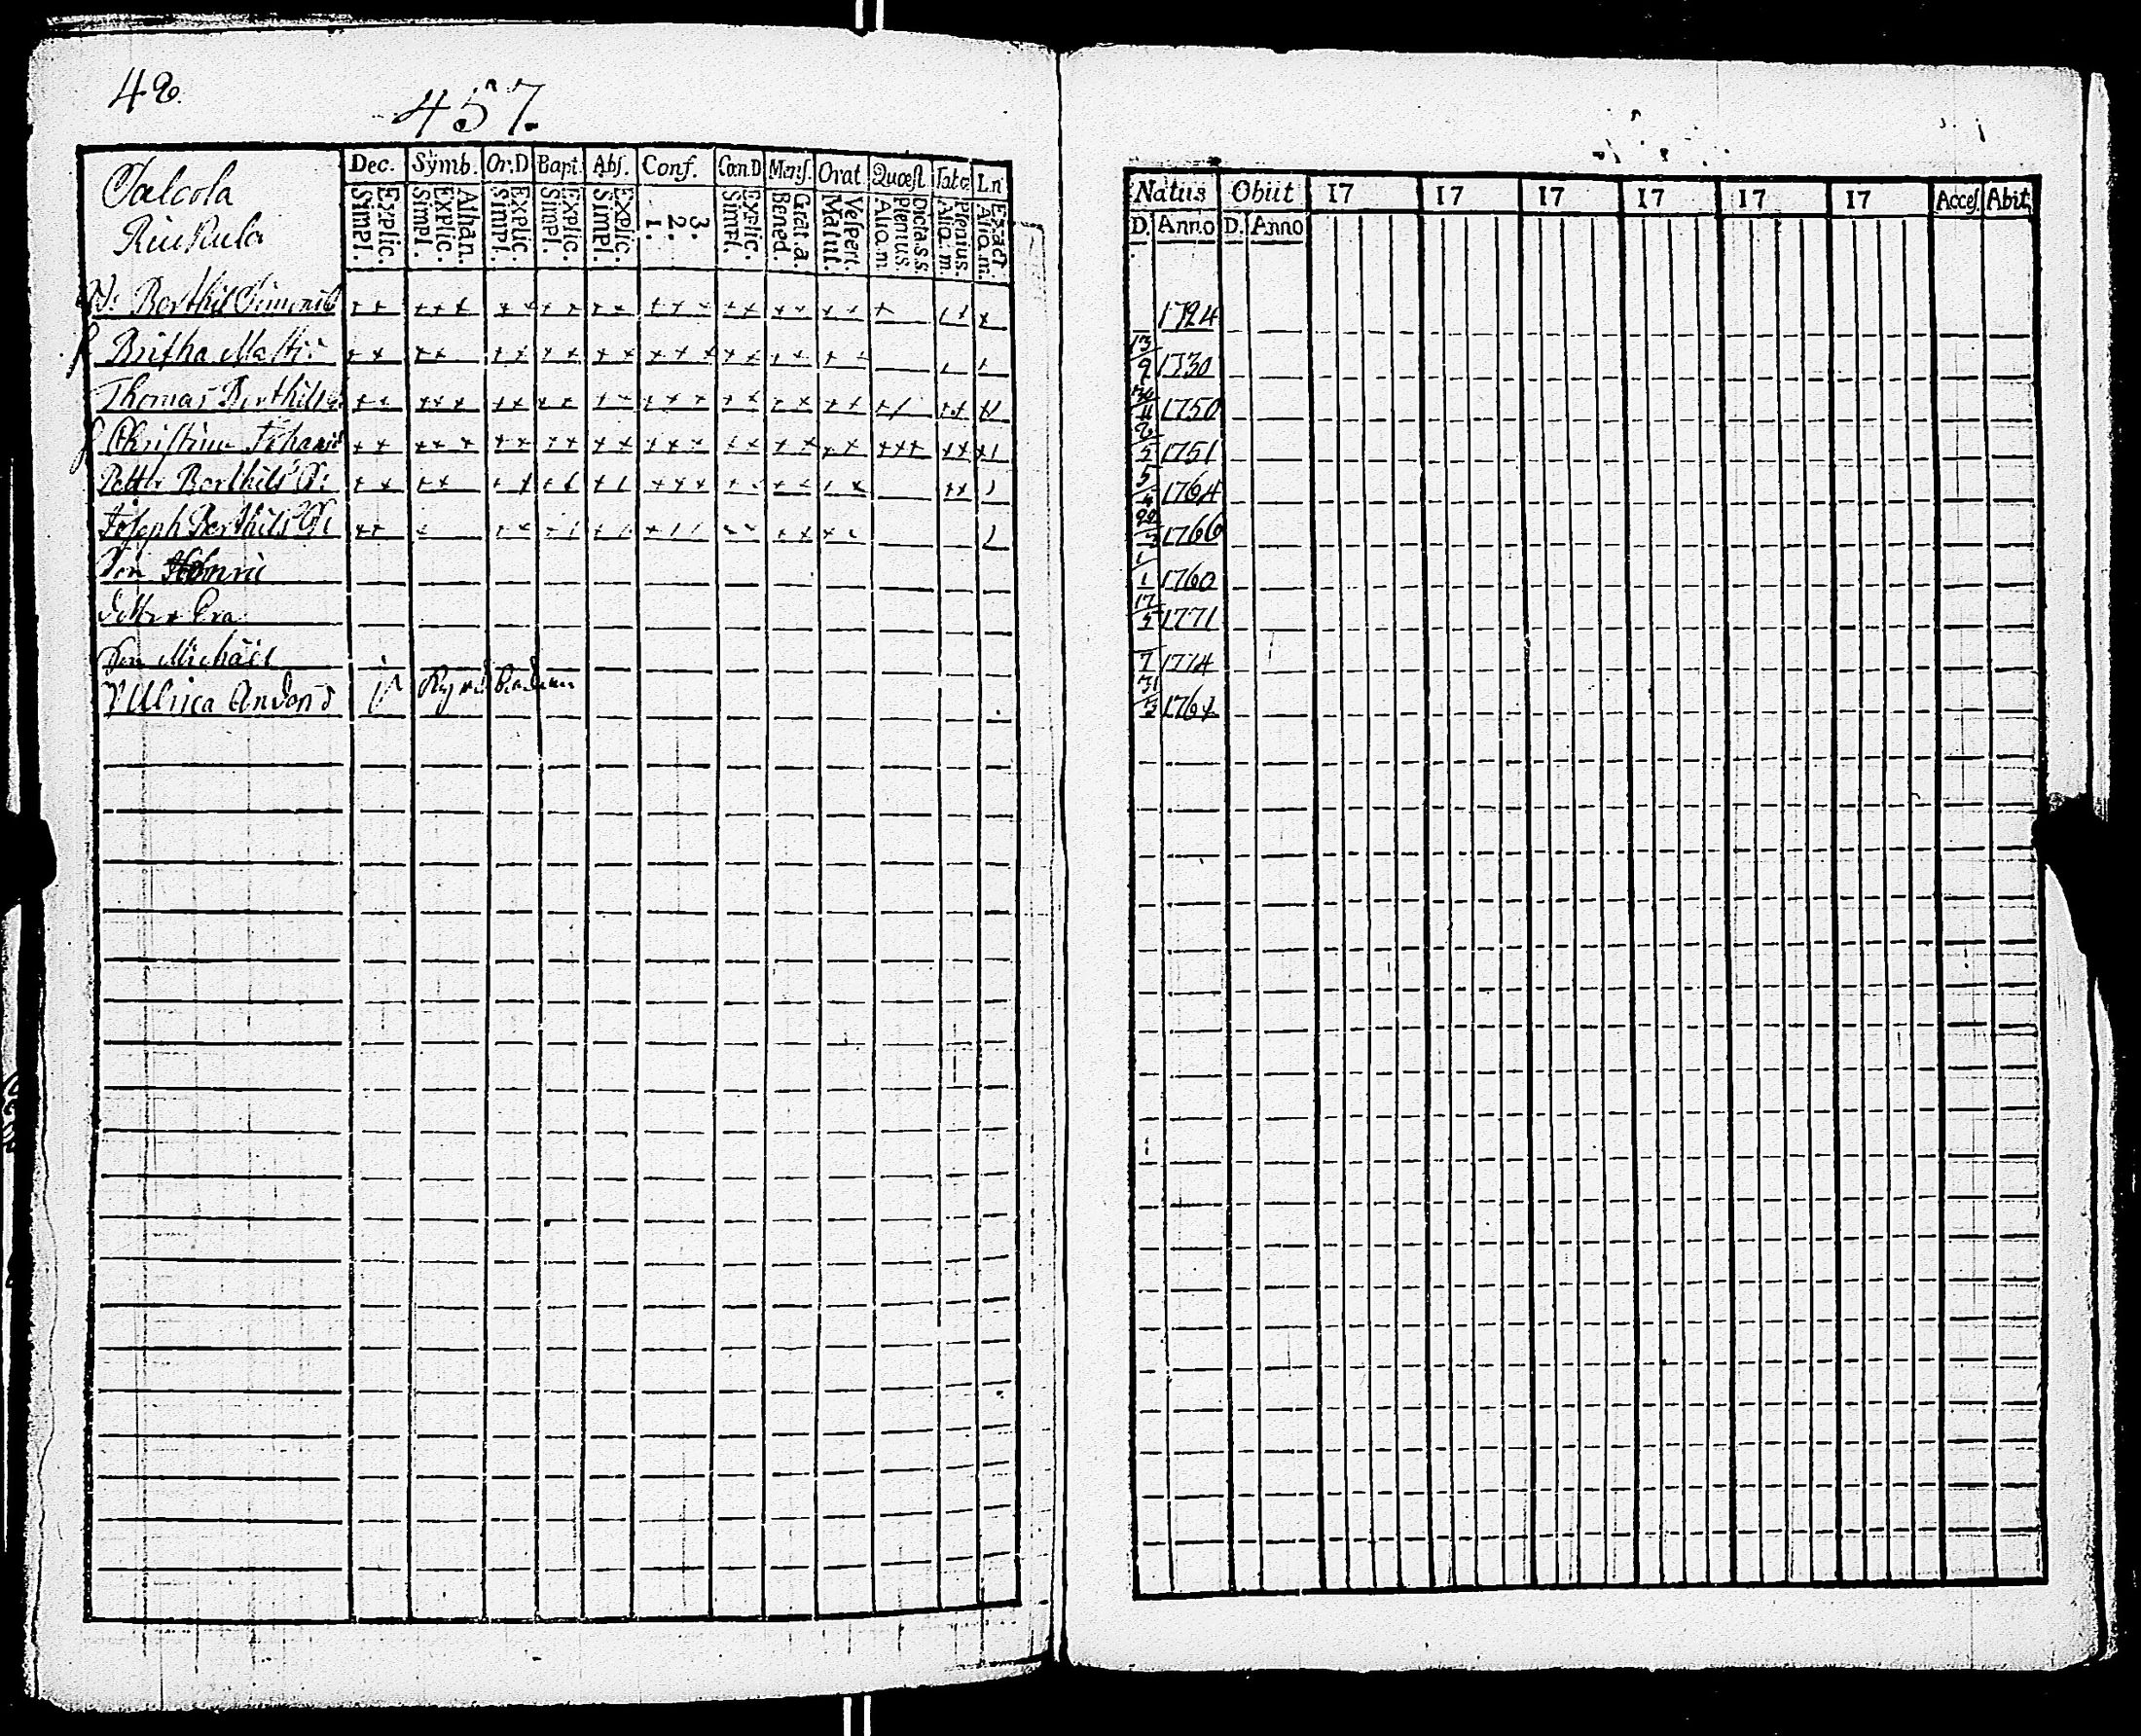 42.
457.
Dec. Symb. Or.D Bapt. Abs. Conf. Cœn.D Mens. Orat. Quæst Tab.œ Ln
Explic. Simpl. Athan. Explic. Simpl. Explic. Simpl. Explic. Simpl. Explic. Simpl. 3. 2. 1. Explic. Simpl. Grat.a. Bened. Vespert. Matut. Dicta.s.s. Plenius. Aliq.m. Plenius. Aliq.m. Exact. Aliq.m.
Berthil Simons
Britha Matts
Thomas Berthils
Christina Johans
Petter Berthils
Joseph Berthils
Son Henric
Dotter Eva
Son Michaël
Ulrica
Natus Obiit 17 17 17 17 17 17 Acces. Abit.
D. Anno D. Anno
1724
13/9 1730
1750
2/5 1751
5 1764
22 1766
1/1 1760
17/5 1771
7 1774
31/5 1764